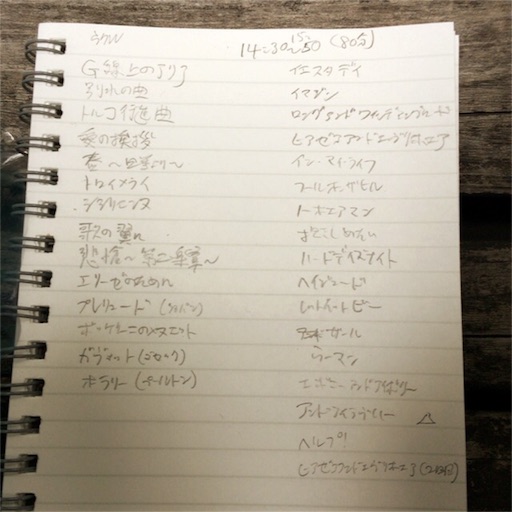 14:30~15:50 (80分)
G線上のアリア
トルコ行進曲
愛の挨拶
春~第一楽章~
トロイメライ
シシリエンヌ
歌の翼に
悲愴~第二楽章~
エリーゼのために
プレリュード(ショパン)
ボッケリーニのメヌエット
ガヴォット(ゴセック)
ホラリー
イエスタデイ
イマジン
ロングアンドワインディングロード
ヒアゼアアンドエヴリホエア
イン・マイ・ライフ
フールオンザヒル
ノーホエアマン
ハードデイズナイト
ヘイジュード
レットイットビー
ガール
ウーマン
エボニーアンドアイボリー
アンドアイラブハー △
ヘルプ!
ヒアゼアアンドエヴリホエア(2回目)